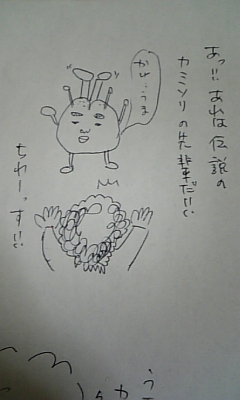 あっ!!あれは伝説の
カミソリの先輩だ!!
かゆ…うま
ちわーっす!!